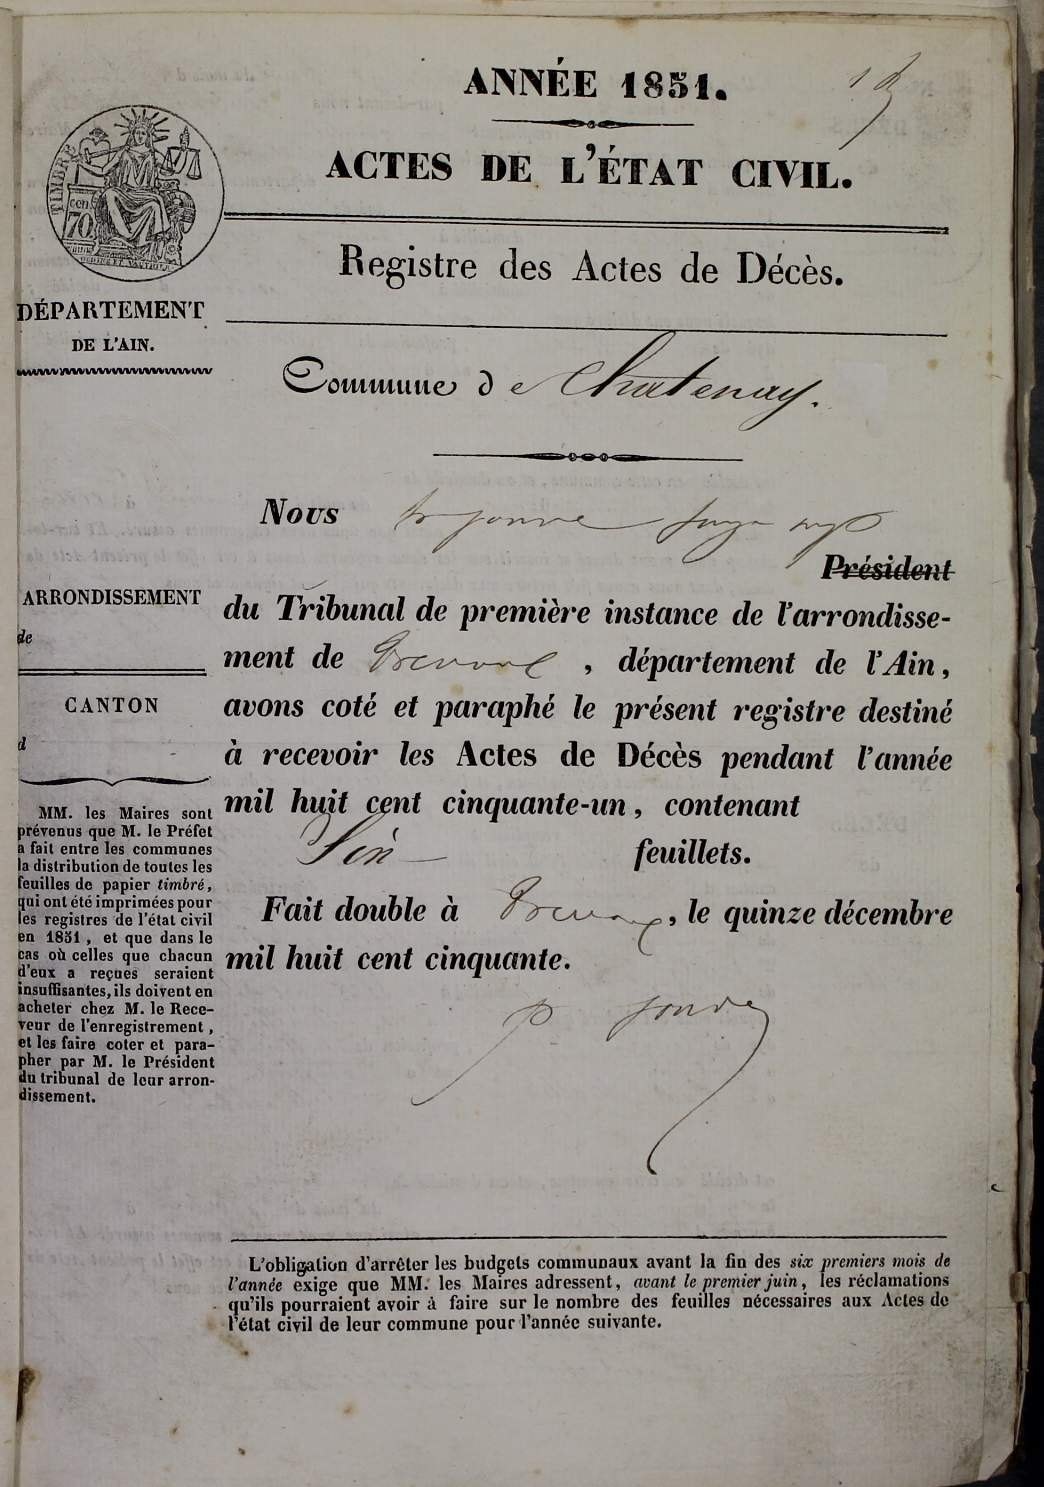 ANNÉE 1851.
ACTES DE L'ÉTAT CIVIL.
TIMBRE
cen.
70
Registre des Actes de Décès.
DÉPARTEMENT
DE L'AIN.
Commune de Chatenay.
Nous
Président
ARRONDISSEMENT
de
CANTON
d
du Tribunal de première instance de l'arrondisse-
ment de Trevoux, département de l'Ain,
avons coté et paraphé le présent registre destiné
à recevoir les Actes de Décès pendant l'année
mil huit cent cinquante-un, contenant
feuillets.
Fait double à Trevoux, le quinze décembre
mil huit cent cinquante.
MM. les Maires sont
prévenus que M. le Préfet
a fait entre les communes
la distribution de toutes les
feuilles de papier timbré,
qui ont été imprimées pour
les registres de l'état civil
en 1851, et que dans le
cas où celles que chacun
d'eux a reçues seraient
insuffisantes, ils doivent en
acheter chez M. le Rece-
veur de l'enregistrement,
et les faire coter et para-
pher par M. le Président
du tribunal de leur arron-
dissement.
L'obligation d'arrêter les budgets communaux avant la fin des six premiers mois de
l'année exige que MM. les Maires adressent, avant le premier juin, les réclamations
qu'ils pourraient avoir à faire sur le nombre des feuilles nécessaires aux Actes de
l'état civil de leur commune pour l'année suivante.